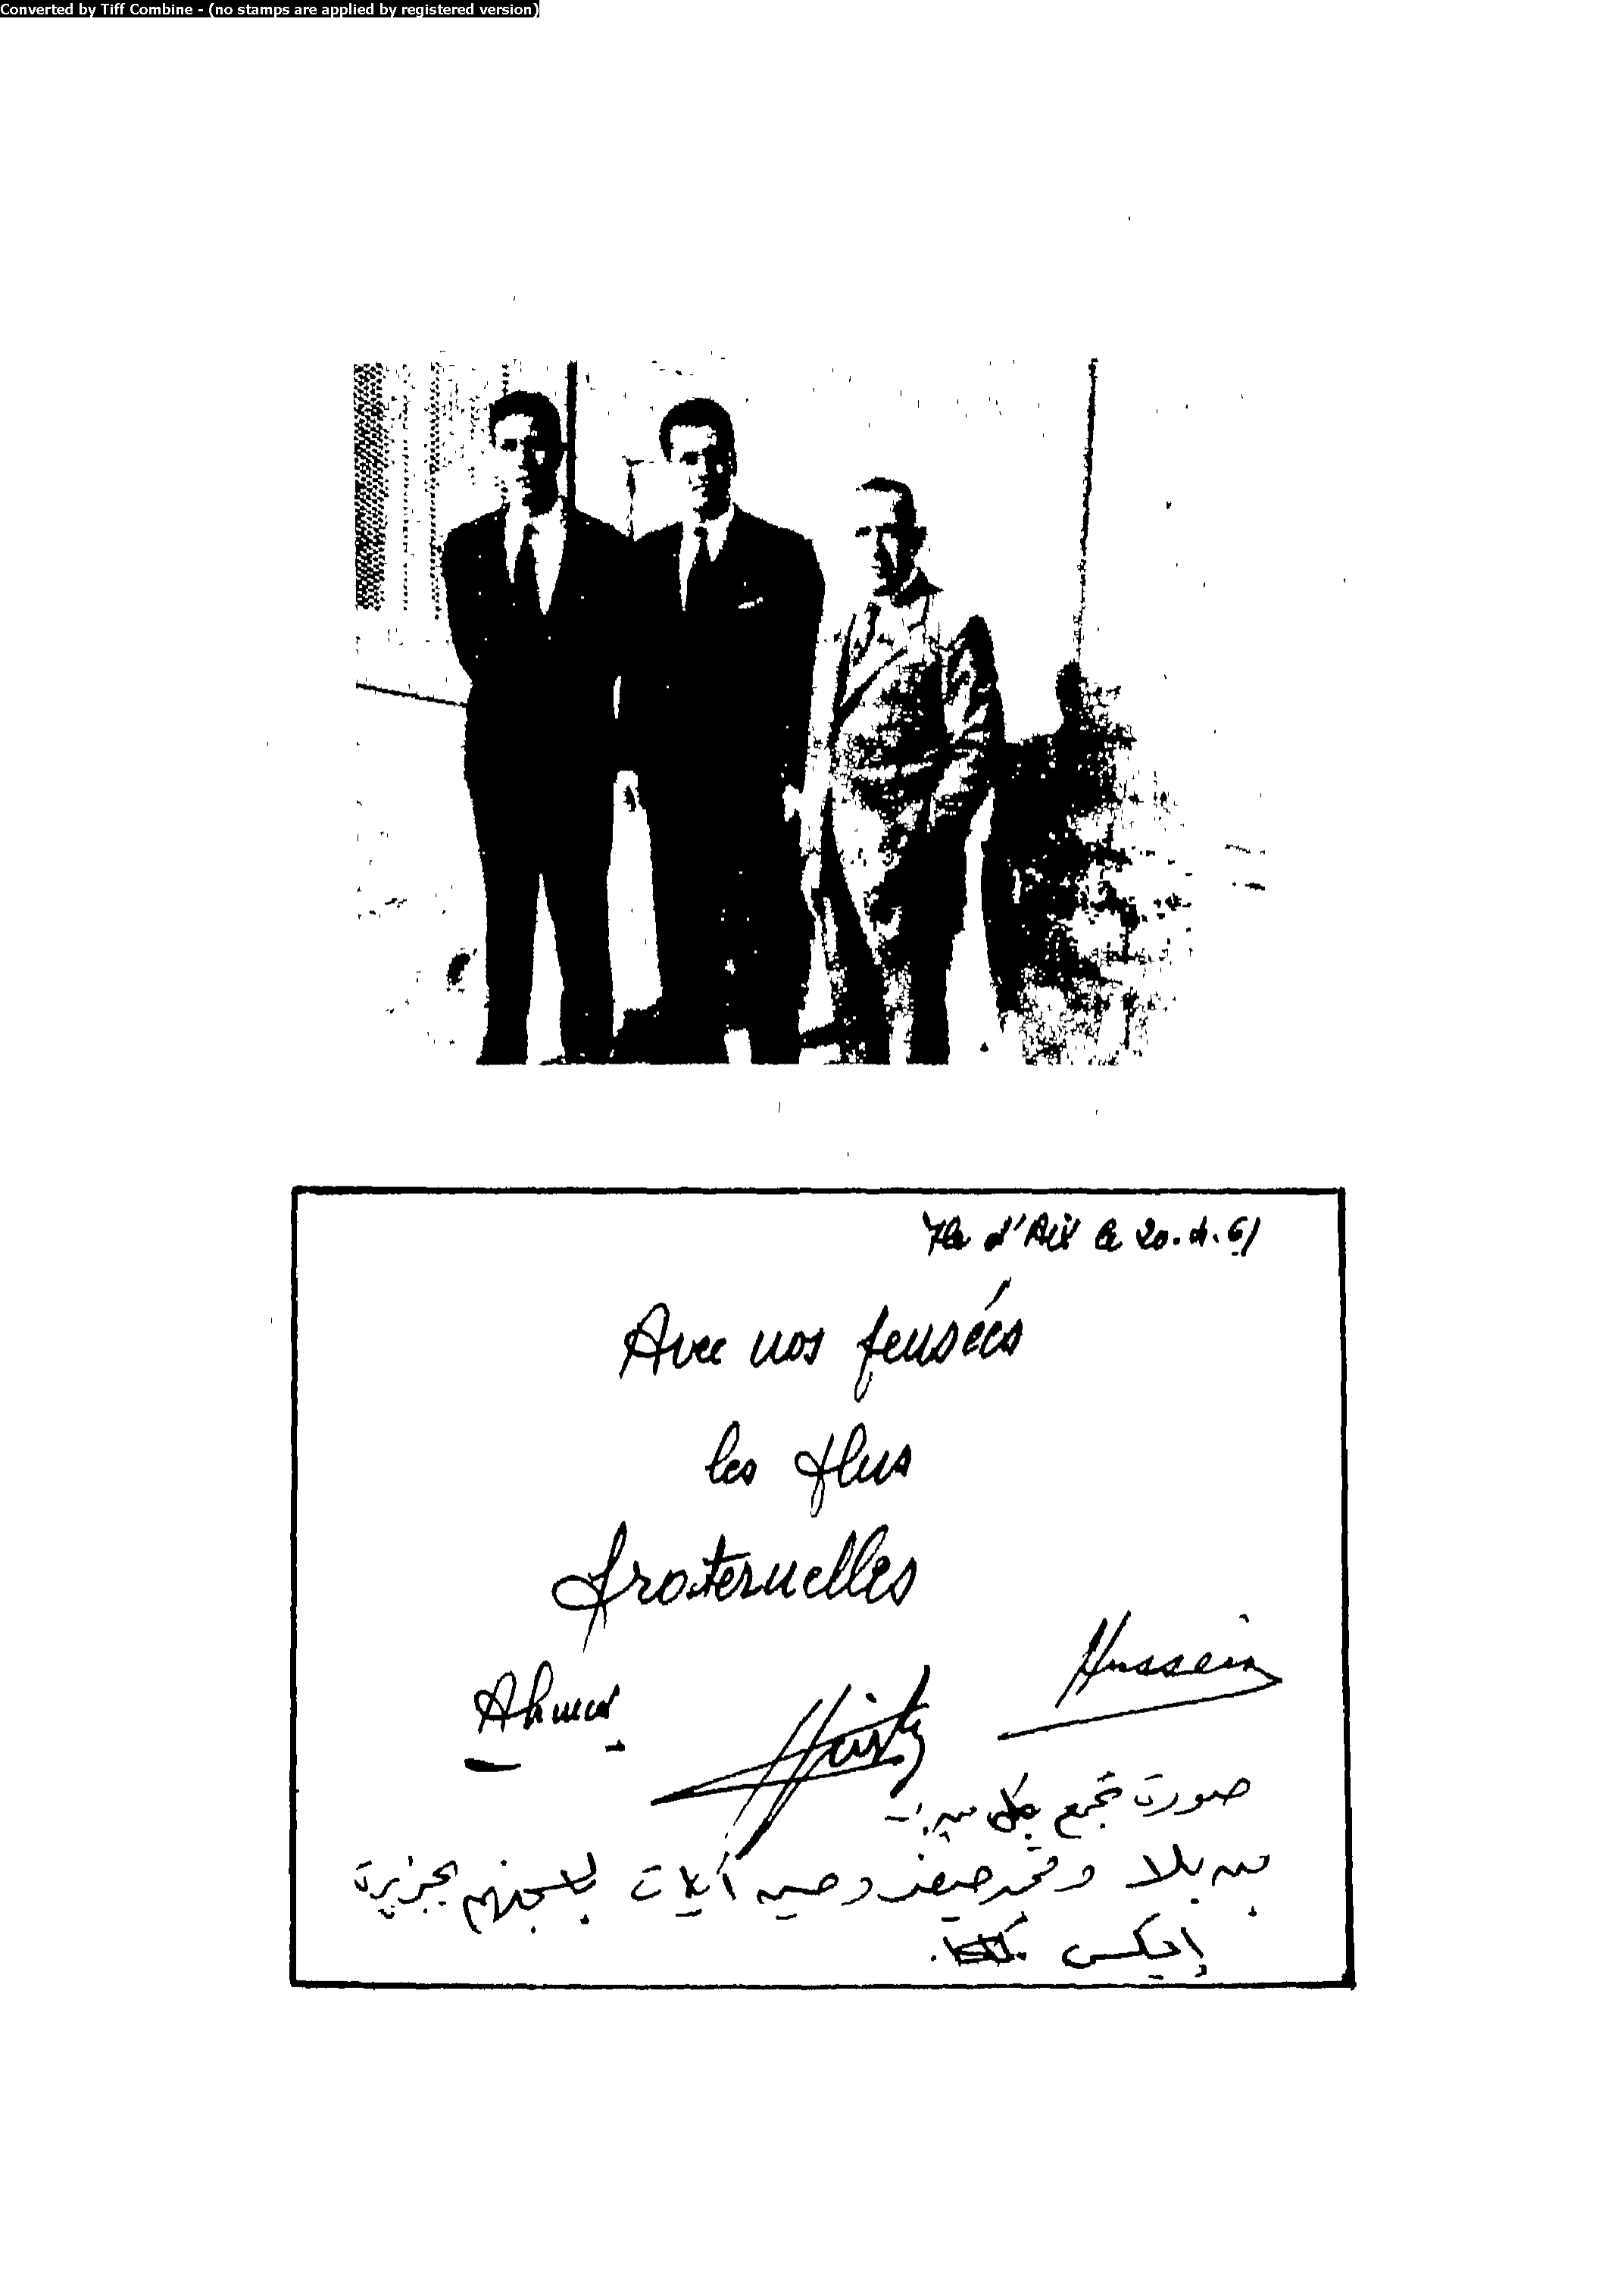 Converted by Tiff Combine - (no stamps are applied by registered version)
Ile d'Aix le 20.4.61
Avec nos pensées
les plus
fraternelles
Hussein
Ahmed
صورة تجمع كل من :-
بن بلا و محمد خيضر و حسين آيات بجزيرة
إيكس